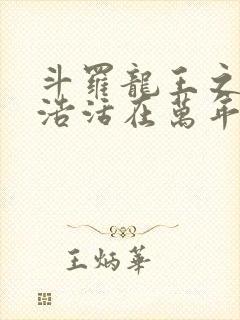 斗羅龍王之
浩活在萬年
王炳華